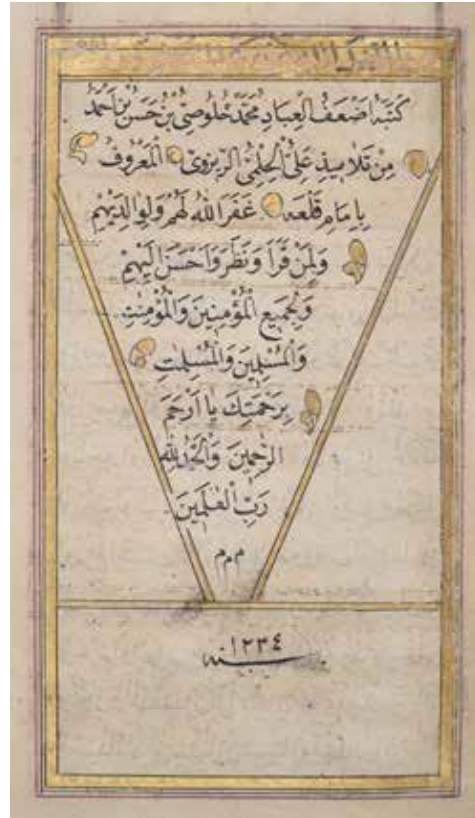 كَتَبَهُ اَضْعَفُ الْعِبَادِ مُحَمَّدْ خُلُوصِى بْنُ حَسَنْ بْنِ اَحْمَدْ
مِنْ تَلَامِيذِ عَلِىُّ الْحِلْمِىُّ الرِّيزَوِىّ الْمَعْرُوفُ
بِاِمَامِ قَلْعَه غَفَرَ اللهُ لَهُمْ وَلِوَالِدَيْهِمْ
وَلِمَنْ قَرَاَ وَنَظَرَ وَاَحْسَنَ اِلَيْهِمْ
وَلِجَمِيعِ الْمُؤْمِنِينَ وَالْمُؤْمِنٰتِ
وَالْمُسْلِمِينَ وَالْمُسْلِمٰتِ
بِرَحْمَتِكَ يَا اَرْحَمَ
الرّٰحِمِينَ وَالْحَمْدُ لِلّٰهِ
رَبِّ الْعٰلَمِينَ
م م م
سنه ١٢٣٤